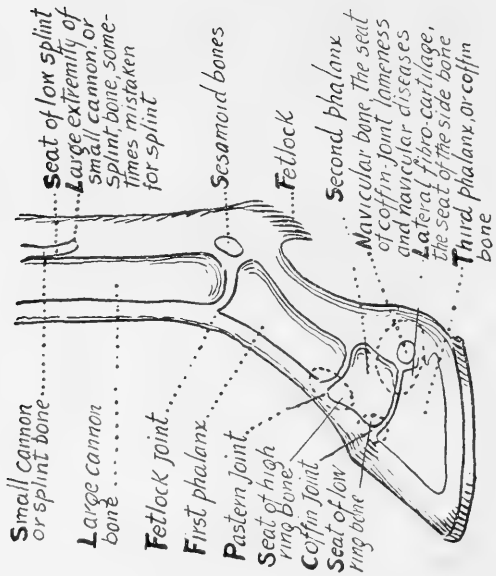 Small cannon
or splint bone
Large cannon
bone
Fetlock joint
First phalanx
Pastern joint
Seat of high
ring bone
Coffin Joint
Seat of low
ring bone
Seat of low splint
Large extremity of
small cannon, or
splint bone, some-
times mistaken
for splint
Sesamoid bones
Fetlock
Second phalanx
Navicular bone, the seat
of coffin-joint lameness
and navicular diseases
Lateral fibro-cartilage,
the seat of the side bone
Third phalanx, or coffin
bone